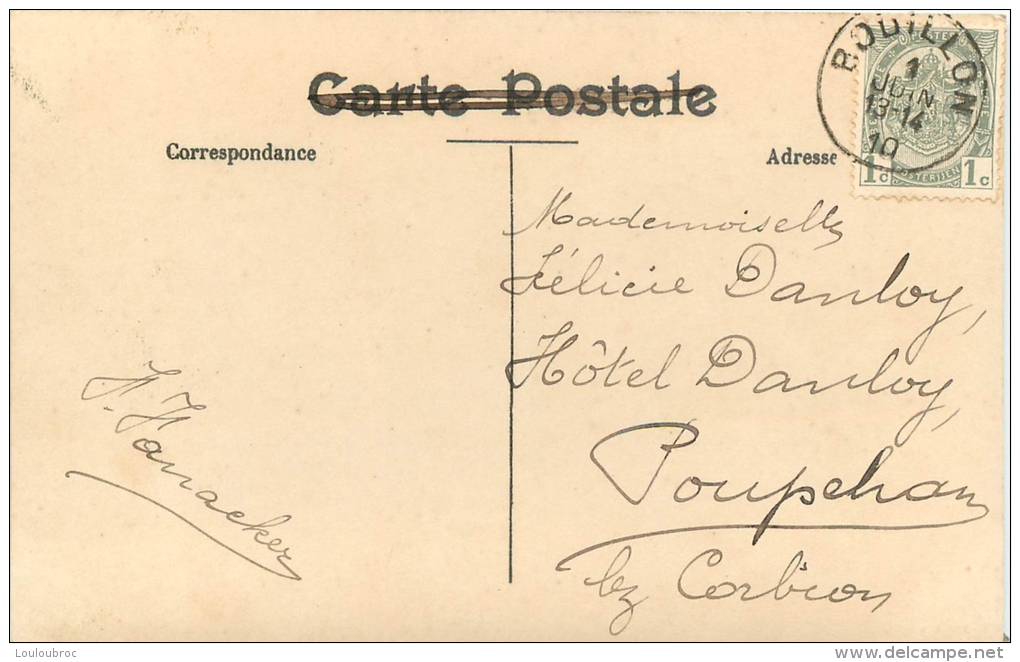 Carte Postale
Correspondance
Adresse
BOUILLON
1
JUIN
13-14
10
POSTES
POSTERIJEN
1c 1c
Mademoiselle
Félicie Danloy,
Hôtel Danloy,
Poupehan
by Corbion
Louloubroc
www.delcampe.net